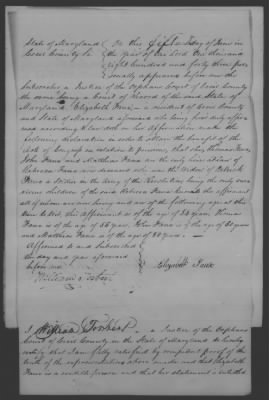 State of Maryland } On this fifth day of June in
Cecil County Sc. } the year of our Lord One thousand
eight hundred and forty three per
sonally appeared before me the
Subscriber a Justice of the Orphans Court of Cecil County
the same being a Court of Record of the said State of
Maryland Elizabeth a resident of Cecil County
and State of Maryland aforesaid who being duly
according to law doth on her Affirmation make the
following declaration in order to obtain the benefit of the
Acts of Congress in relation to pensions, that she, Thomas
John and Matthew are the only children of
Rebecca now deceased who was the Widow of Patrick
a Soldier in the Army of the Revolution being the only sur
viving children of the said Rebecca the affirmant
all of whom are now living and are of the following ages at this
time to Wit this Affirmant is of the age of years, Thomas
is of the age of 56 years, John is of the age of years
and Matthew is of the age of years
Affirmed to and Subscribed }
the day and year aforesaid }
before me } Elizabeth
William Torbert
I William Torbert a Justice of the Orphans
Court of Cecil County in the State of Maryland do hereby
certify that I am fully satisfied by competent proof of the
truth of the representations above made and that Elizabeth
is a credible person and that her statement is entitled